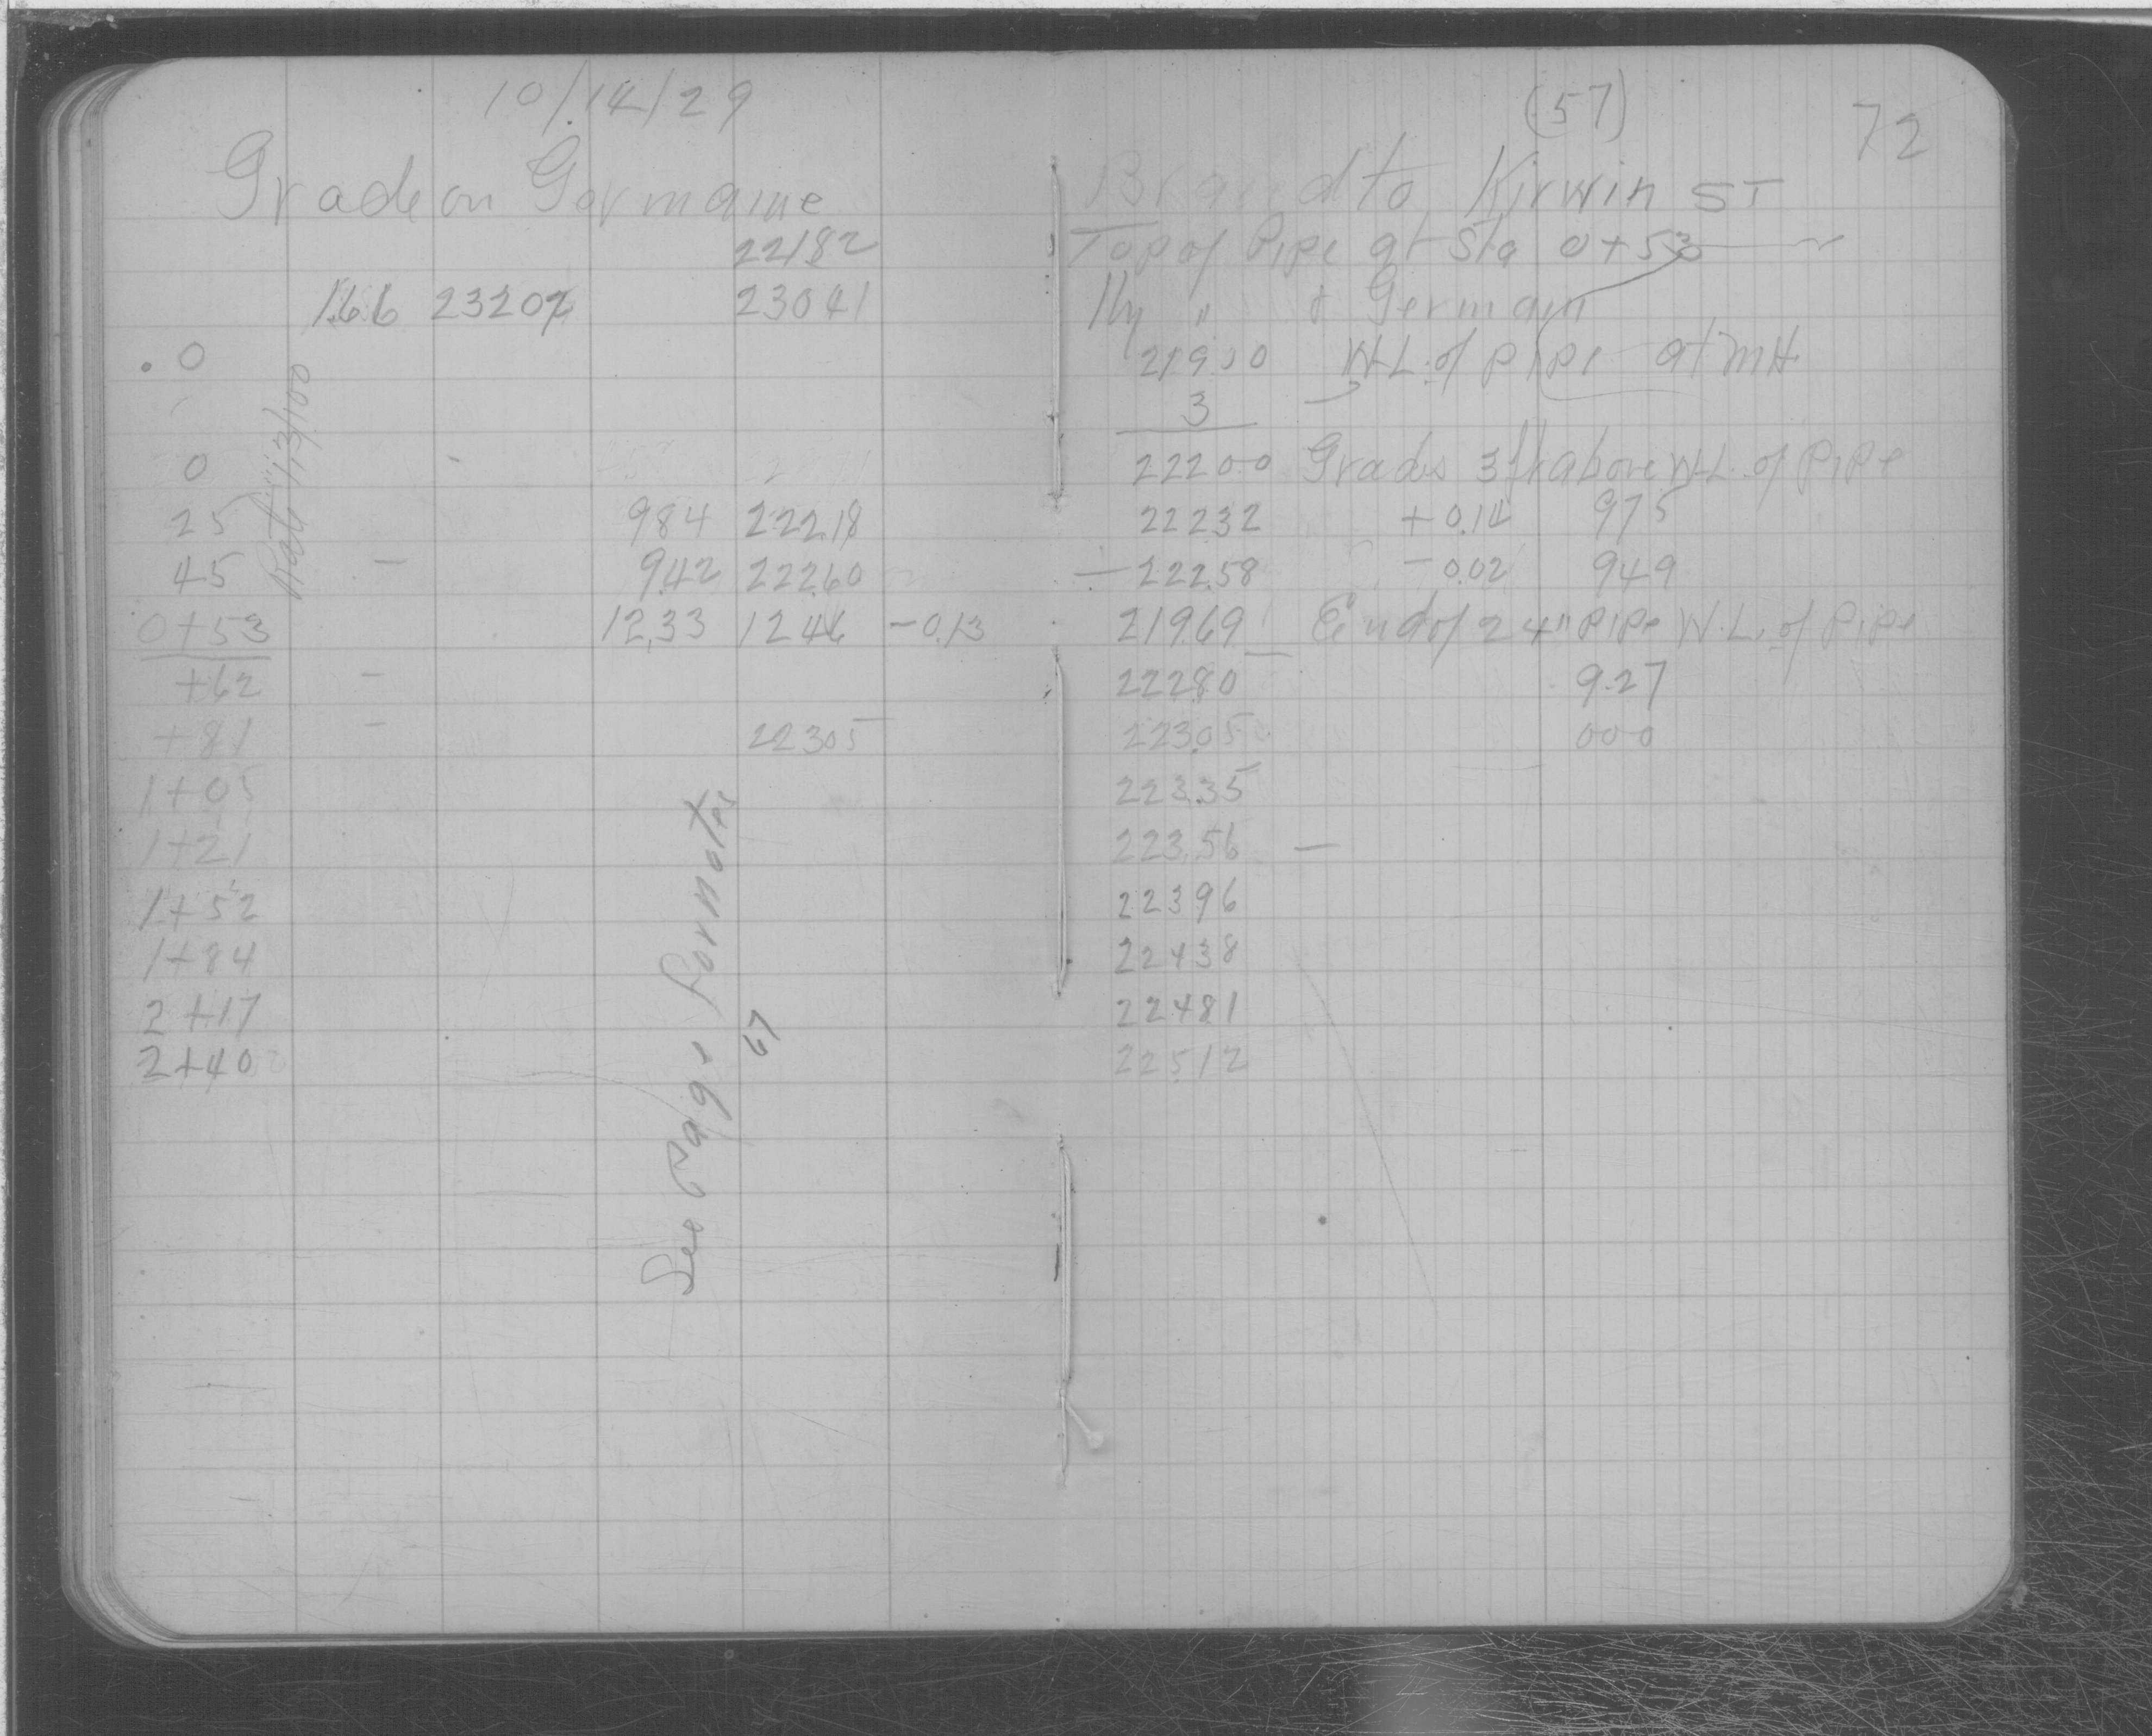 10/14/29
Grade on Germaine
22182
1.66 23207 23041
0
0
25 984 222.18
45 9.42 222.60
0+53 12.33 12.46 -0.13
+62 -
+81 - 22305
1+05
1+21
1+52
1+84
2+17
2+40
Rate 1.3/100
See Page for notes
67
(57) 72
Brand to Kirwin ST
Top of Pipe at Sta 0+53
Hy " & Germain
21900 W.L. of pipe at MH
3
22200 Grades 3 ft above W.L. of Pipe
22232 +0.14 975
222.58 -0.02 949
219.69 End of 24" pipe W.L. of Pipe
222.80 9.27
223.05 000
223.35
223.56 -
22396
22438
22481
22512